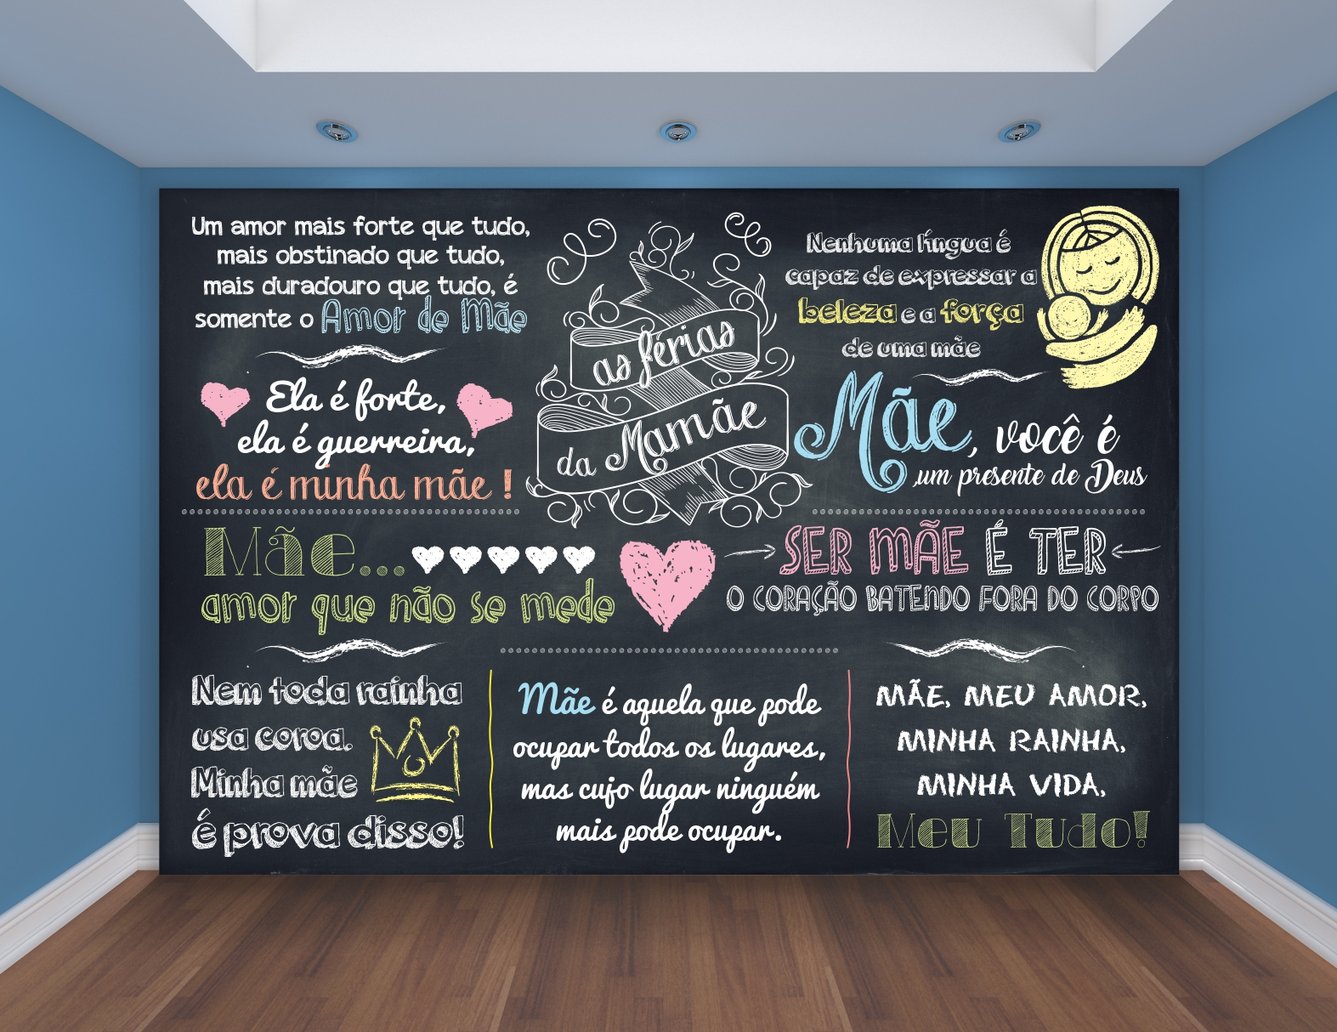 Um amor mais forte que tudo,
mais obstinado que tudo,
mais duradouro que tudo, é
somente o Amor de Mãe
Ela é forte,
ela é guerreira,
ela é minha mãe !
as férias
da Mamãe
Nenhuma língua é
capaz de expressar a
beleza e a força
de uma mãe
Mãe, você é
um presente de Deus
Mãe...
amor que não se mede
SER MÃE É TER
O CORAÇÃO BATENDO FORA DO CORPO
Nem toda rainha
usa coroa.
Minha mãe
é prova disso!
Mãe é aquela que pode
ocupar todos os lugares,
mas cujo lugar ninguém
mais pode ocupar.
MÃE, MEU AMOR,
MINHA RAINHA,
MINHA VIDA,
Meu Tudo!